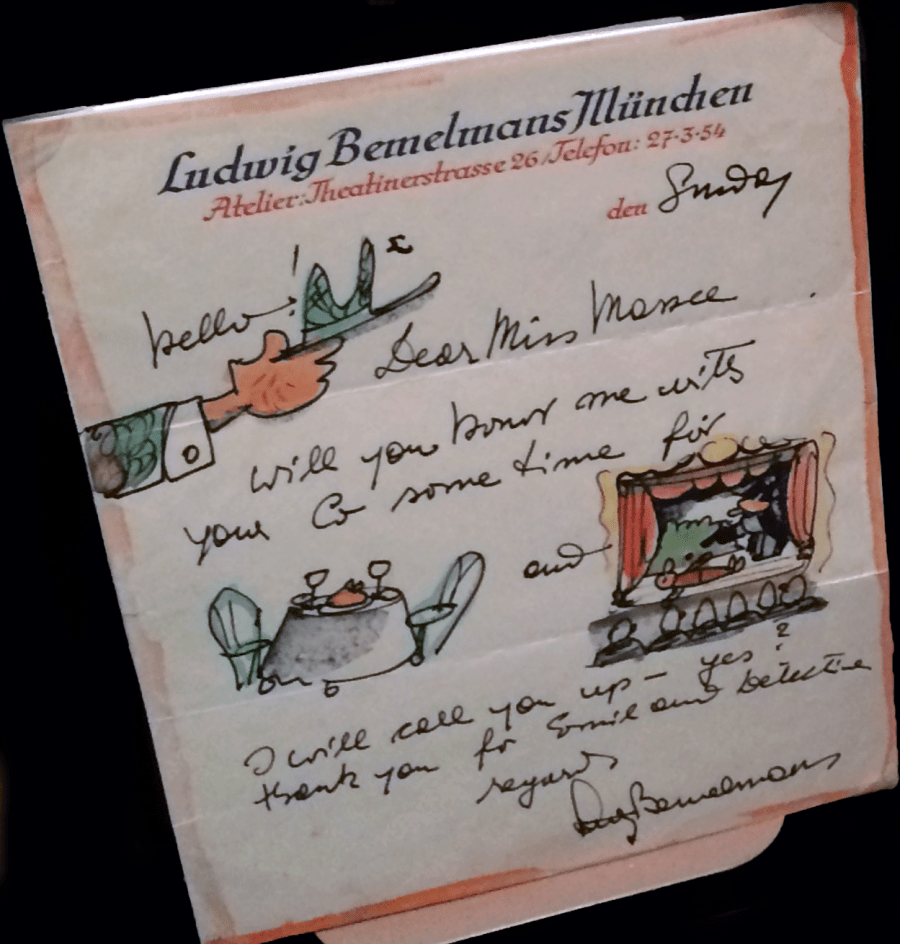 Ludwig Bemelmans München
Atelier: Theatinerstrasse 26 / Telefon: 27·3·54
den Sunday
hello !
Dear Miss Massee
will you honor me with
your Co some time for
and
I will call you up – yes?
thank you for Emil and Detective
regards
Ludwig Bemelmans